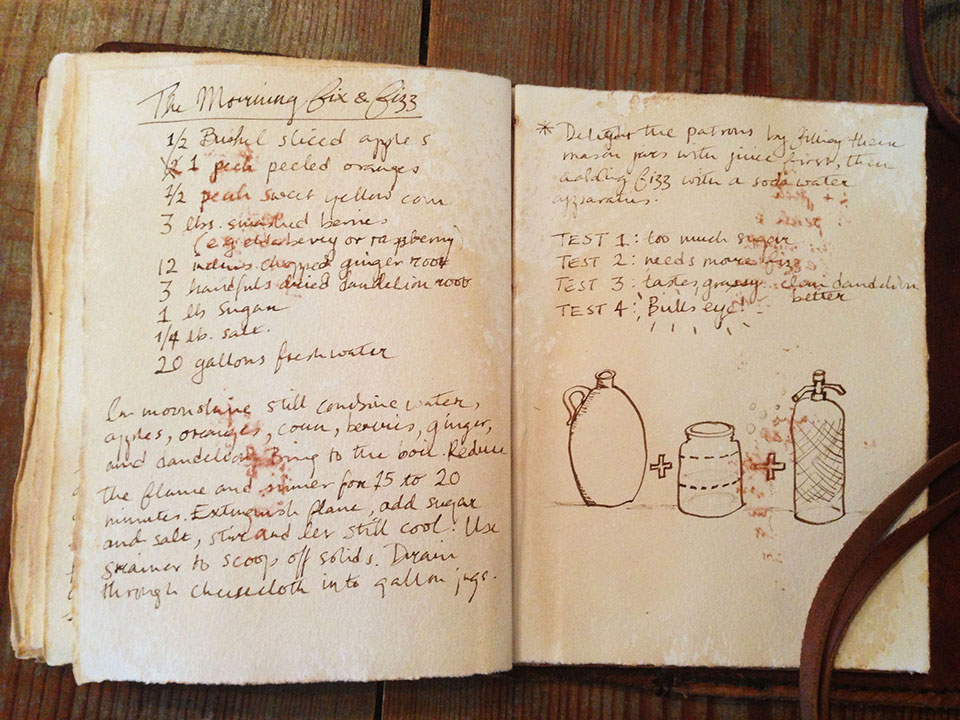 The Morning Fix & Fizz
1/2 Bushel sliced apples
1 peck peeled oranges
1/2 peck sweet yellow corn
3 lbs. smashed berries
(e.g. elderberry or raspberry)
12 inches chopped ginger root
3 handfuls dried dandelion root
1 lb sugar
1/4 lb. salt.
20 gallons fresh water
In moonshine still combine water,
apples, oranges, corn, berries, ginger,
and dandelion. Bring to the boil. Reduce
the flame and simmer for 15 to 20
minutes. Extinguish flame, add sugar
and salt, stir and let still cool. Use
strainer to scoop off solids. Drain
through cheesecloth into gallon jugs.
* Delight the patrons by filling their
mason jars with juice first, then
adding fizz with a soda water
apparatus.
TEST 1: too much sugar
TEST 2: needs more fizz
TEST 3: tastes grassy. clean dandelion
better
TEST 4: Bulls eye!
+ +